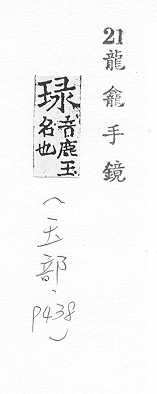 21龍龕手鏡
琭音鹿玉
名也
(玉部、p438)